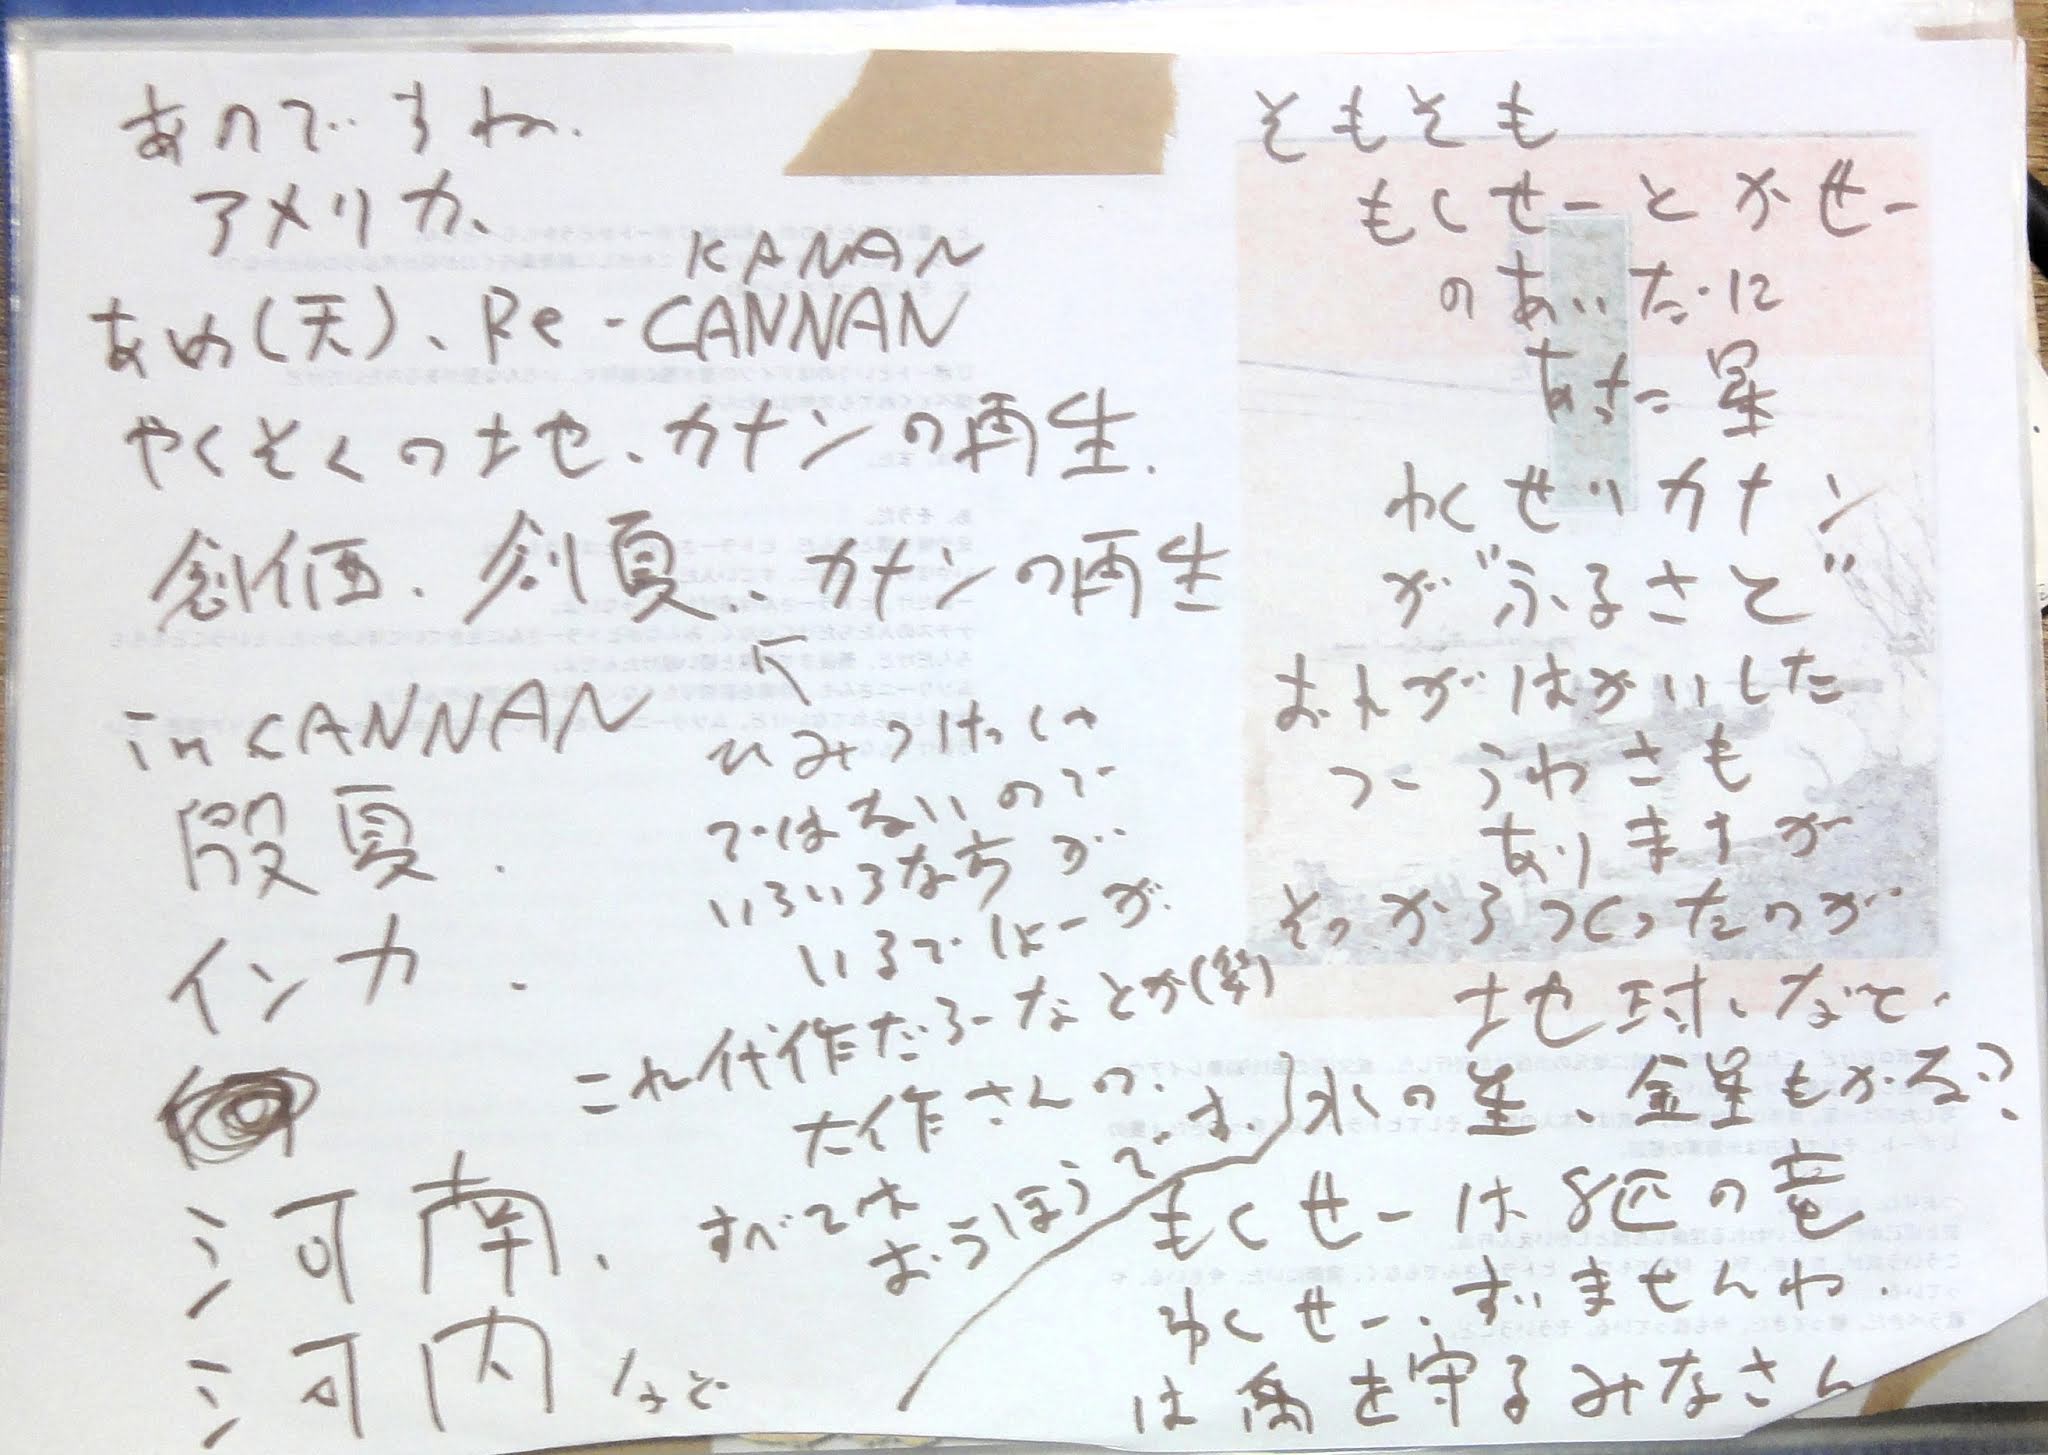 あのですね.
アメリカ、
KANAN
あめ(天)、Re-CANNAN
やくそくの土地、カナンの再生.
創価、創夏、カナンの再生
in CANNAN
殷夏.
インカ.
河南、
河内など
ひみつけっしゃ
ではないので
いろいろな方が
いるでしょーが
これ代作だろーなとか(笑)
大作さんの、
すべては
おうほうです
そもそも
もくせーとかせー
のあいだに
あった星
わくせいカナン
が"ふるさと"
おれがはかいした
つーうわさも
ありますが
そっからつくったのが
地球、など、
水の星、金星もかな?
もくせーは8匹の竜
わくせー、すいませんね.
は禹を守るみなさん